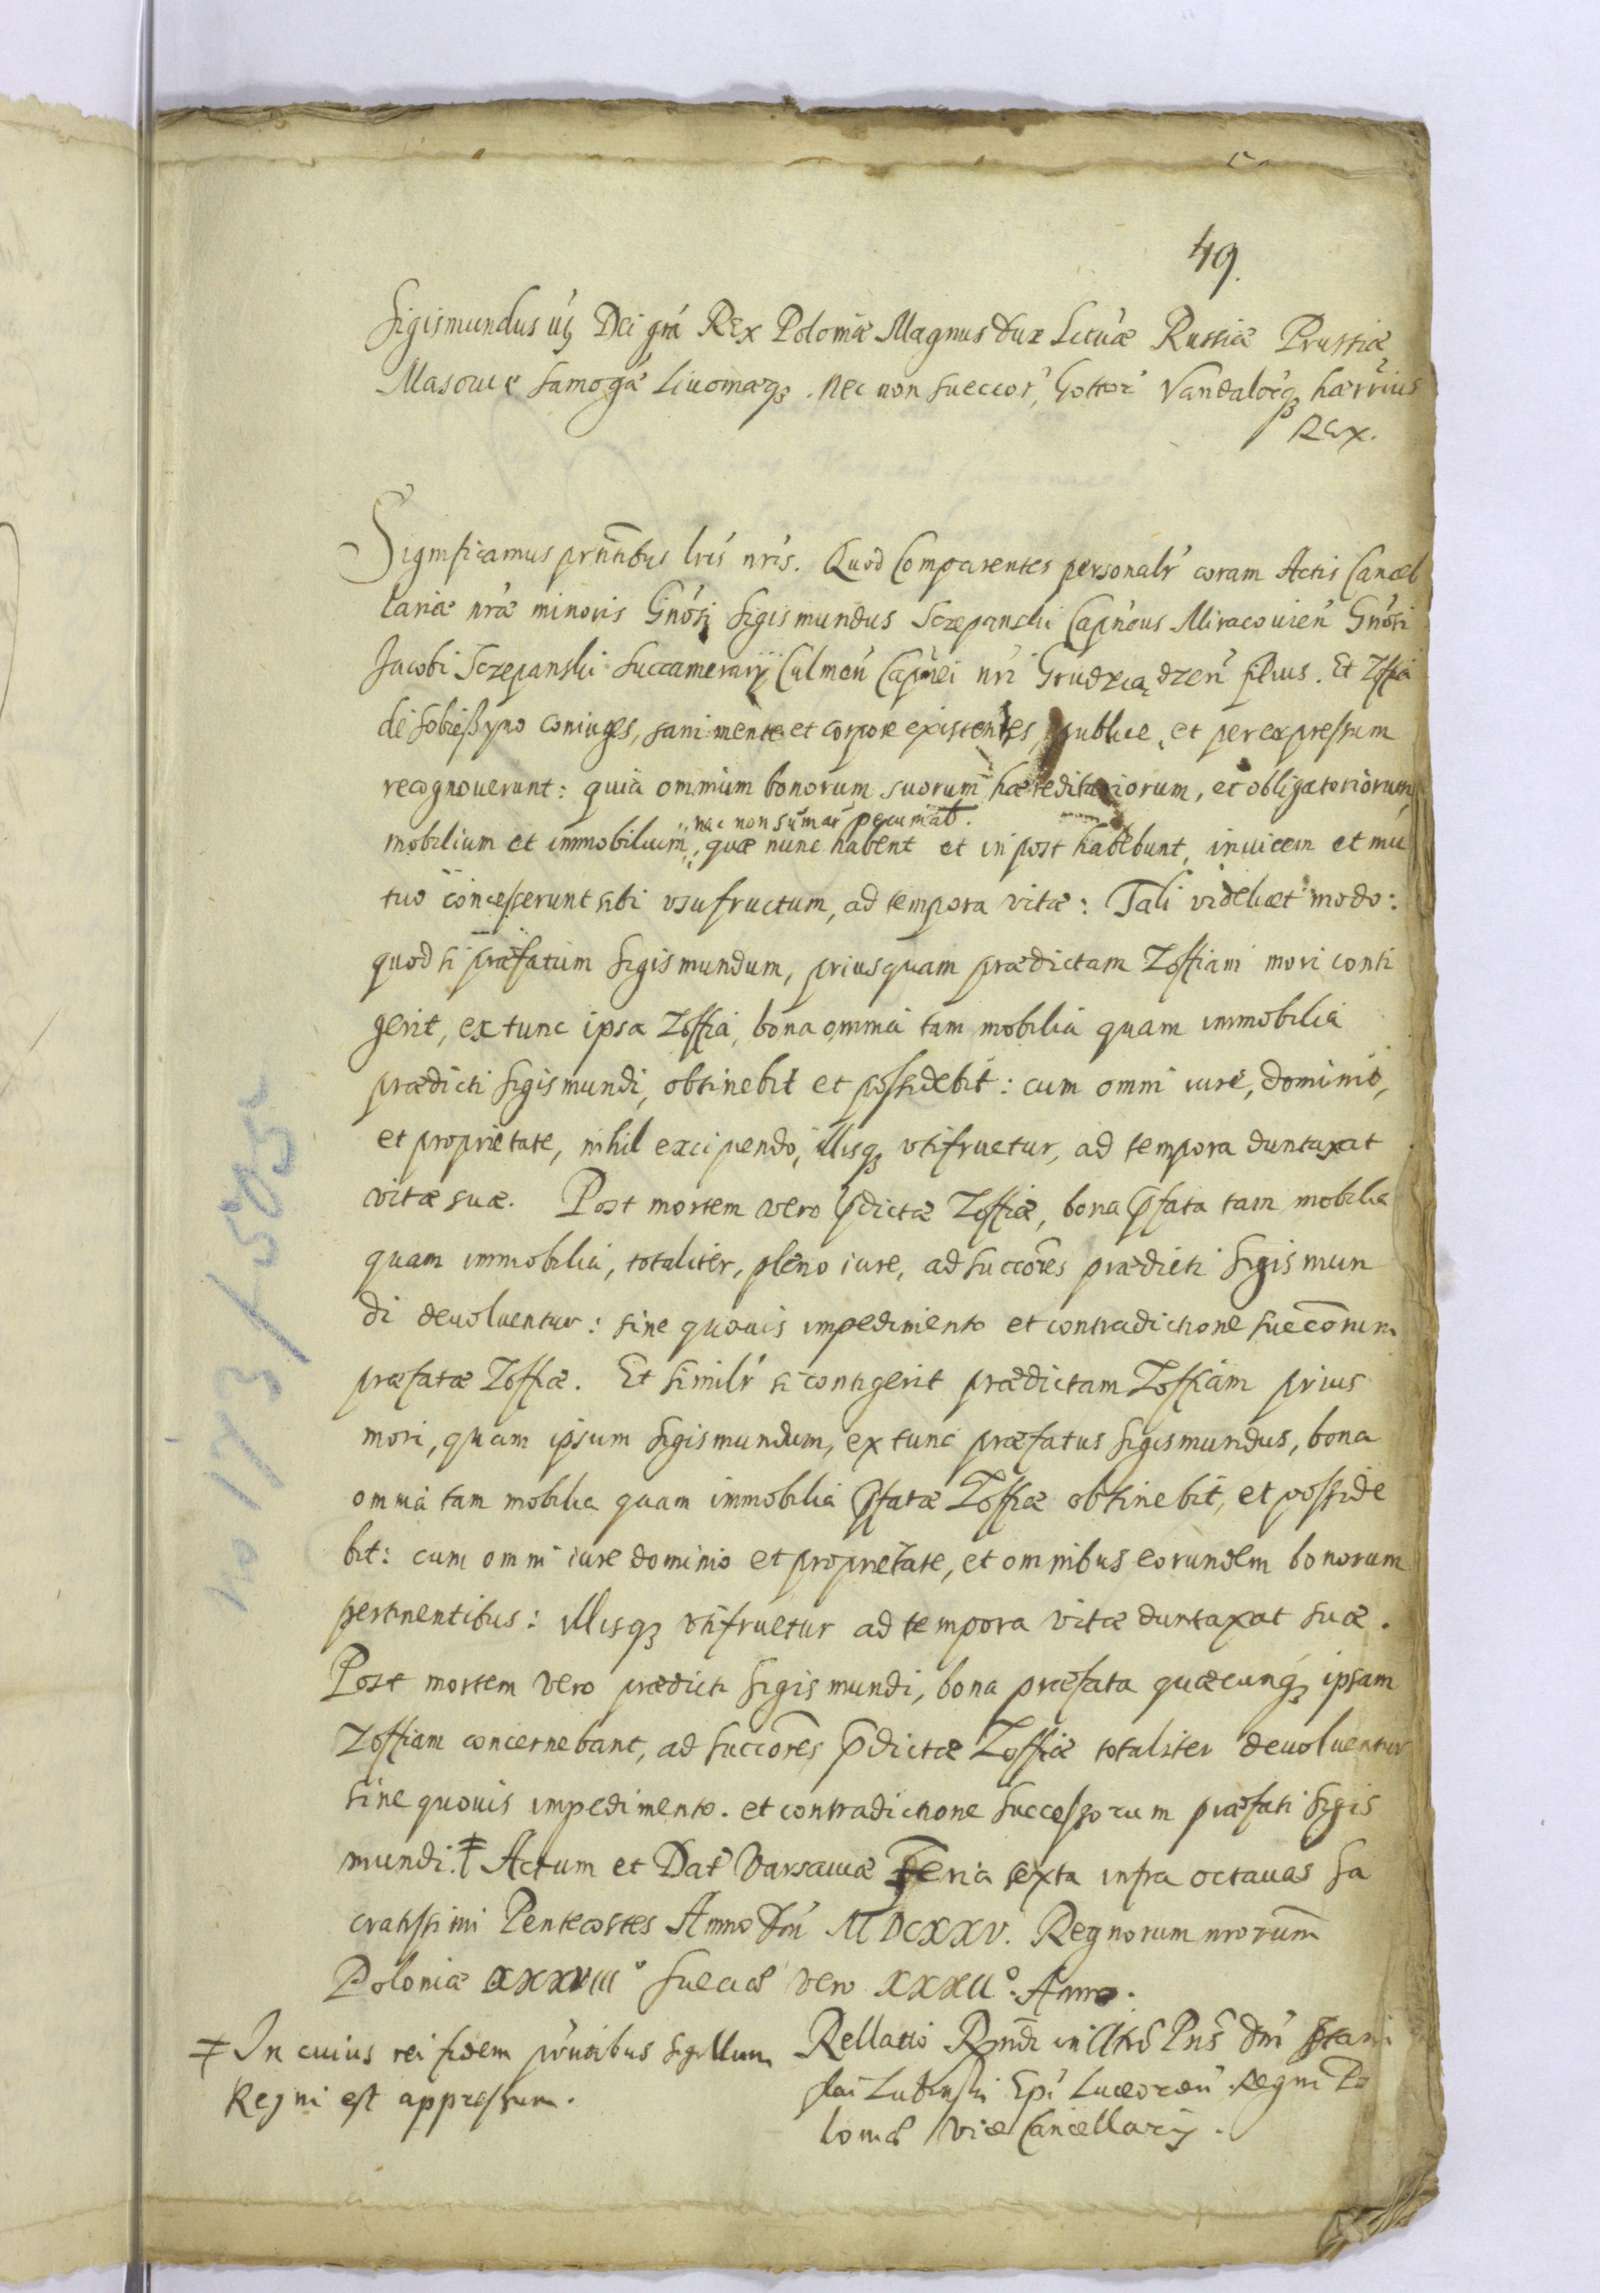 49.
Sigismundus iijs Dei gra Rex Poloniæ Magnus Dux Lituæ Russiæ Prussiæ
Masouiæ Samogæ Livoniæqz. nec non Sueccor, Gottor Vandalorqz hærrius
Rex.
Significamus prntibus lris nris. Quod Comparentes personalr coram Actis Cancel
lariæ nræ minoris Gnosi Sigismundus Sczepanski Capneus Miracouien Gnosi
Jacobi Sczepanski Succamerarij Culmen Capnei nri Grudziądzen filius. Et Zoffia
de Sobießyno coniuges, sani mente et corpore existentes, publice, et per expressum
recognouerunt: quia omnium bonorum suorum hæreditariorum, et obligatoriorum,
nec non sumar pecuniar.
mobilium et immobilium, quæ nunc habent et in post habebunt, inuicem et mu
tuo concesserunt sibi vsufructum, ad tempora vitæ: Tali videlicet modo:
quod si præfatum Sigismundum, priusquam prædictam Zoffiam mori conti
gerit, ex tunc ipsa Zoffia, bona omnia tam mobilia quam immobilia
prædicti Sigismundi, obtinebit et possidebit: cum omni iure, dominio,
et proprietate, nihil excipendo, illisqz vtifruetur, ad tempora duntaxat
vitæ suæ. Post mortem vero pdictæ Zoffiæ, bona pfata tam mobilia
quam immobilia, totaliter, pleno iure, ad succores prædicti Sigismun
di deuoluentur: sine quouis impedimento et contradictione succorum
præfatæ Zoffiæ. Et similr si contigerit prædictam Zoffiam prius
mori, quam ipsum Sigismundum, ex tunc præfatus Sigismundus, bona
omnia tam mobilia quam immobilia pfatæ Zoffiæ obtinebit, et posside
bit: cum omni iure dominio et proprietate, et omnibus eorundem bonorum
pertinentibus: illisqz vtifruetur ad tempora vitæ duntaxat suæ.
Post mortem vero prædicti Sigismundi, bona præfata quæcunqz ipsam
Zoffiam concernebant, ad succores pdictæ Zoffiæ totaliter deuoluentur
sine quouis impedimento. et contradictione successorum præfati Sigis
mundi. ǂ Actum et Dat Varsauiæ Feria sexta infra octauas Sa
cratissimi Pentecostes Anno Dni MDCXXV. Regnorum nrorum
Poloniæ XXXVIIIº Sueciæ vero XXXIIº. Anno.
ǂ In cuius rei fidem prntibus sigillum
Regni est appressum.
Rellatio Rmdi in Chro Pris Dni Stani
slai Lubinski Epi Luceorien Regni Po
loniæ Vice Cancellarij.
no 173/5052